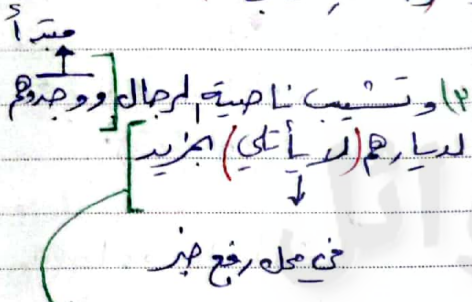 مبتدأ
٣) وتشيب ناصية الرجال [ووجدهم
لديارهم (لا يأتلي) بمزيد]
في محل رفع خبر